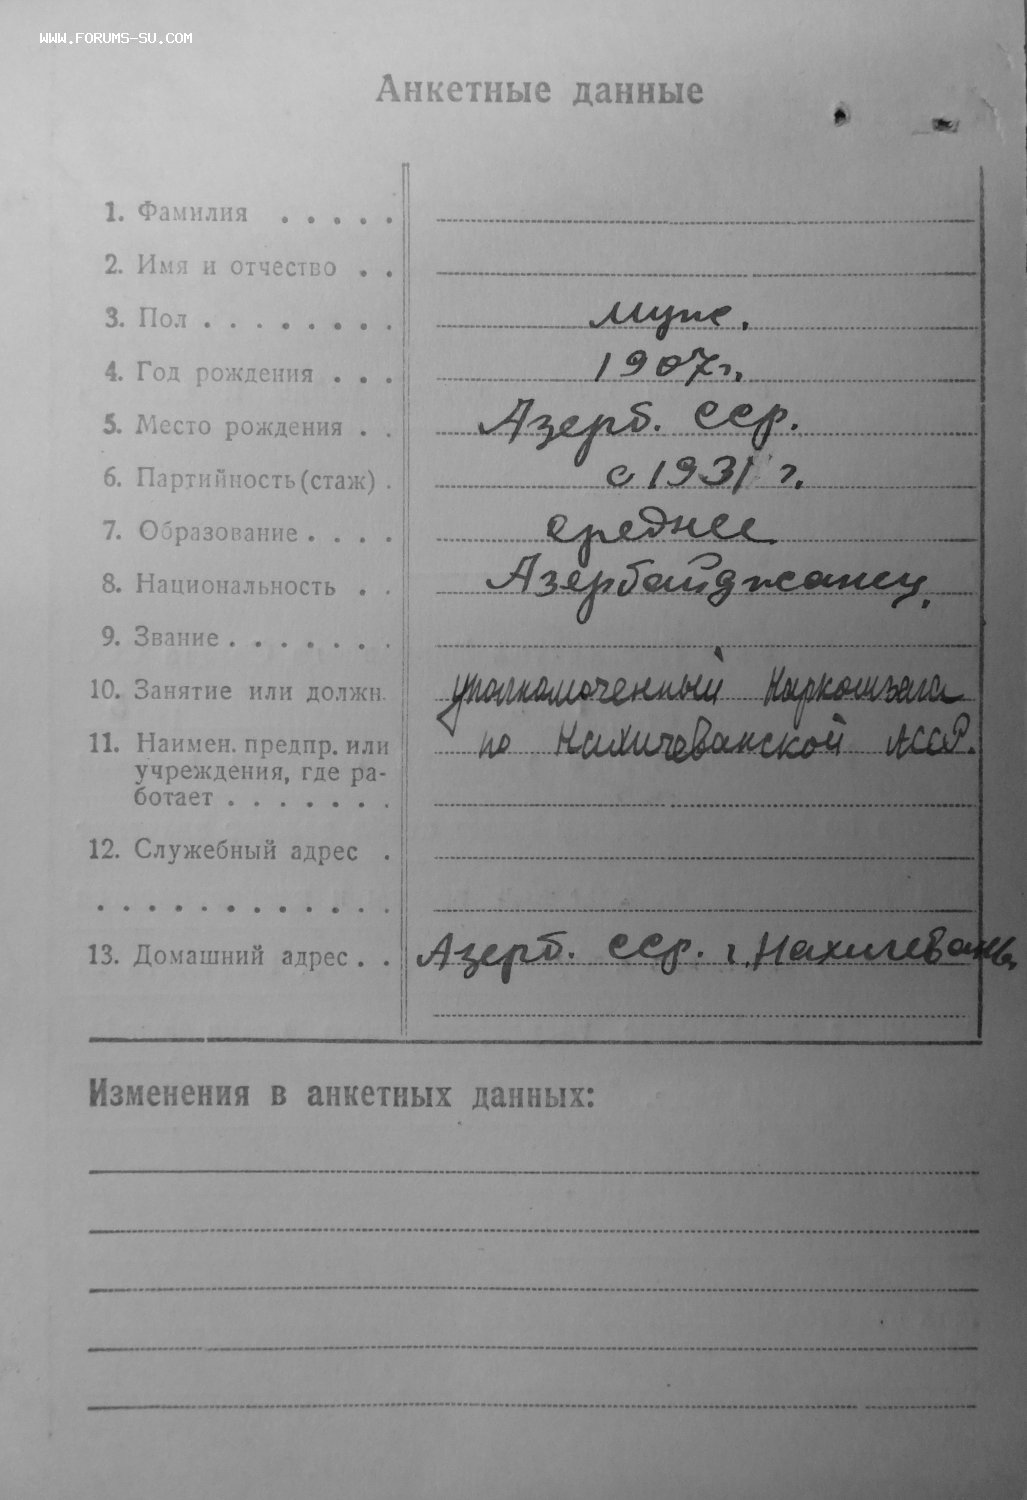 WWW.FORUMS-SU.COM
Анкетные данные
1. Фамилия . . . . .
2. Имя и отчество . .
3. Пол . . . . . . . . муж.
4. Год рождения . . . 1907 г.
5. Место рождения . . Азерб. ССР.
6. Партийность (стаж) . с 1931 г.
7. Образование . . . . среднее
8. Национальность . . Азербайджанец.
9. Звание . . . . . . .
10. Занятие или должн. уполномоченный
11. Наимен. предпр. или по Нахичеванской АССР.
учреждения, где ра-
ботает . . . . . . .
12. Служебный адрес .
. . . . . . . . . . . .
13. Домашний адрес . . Азерб. ССР. г. Нахичевань,
Изменения в анкетных данных: